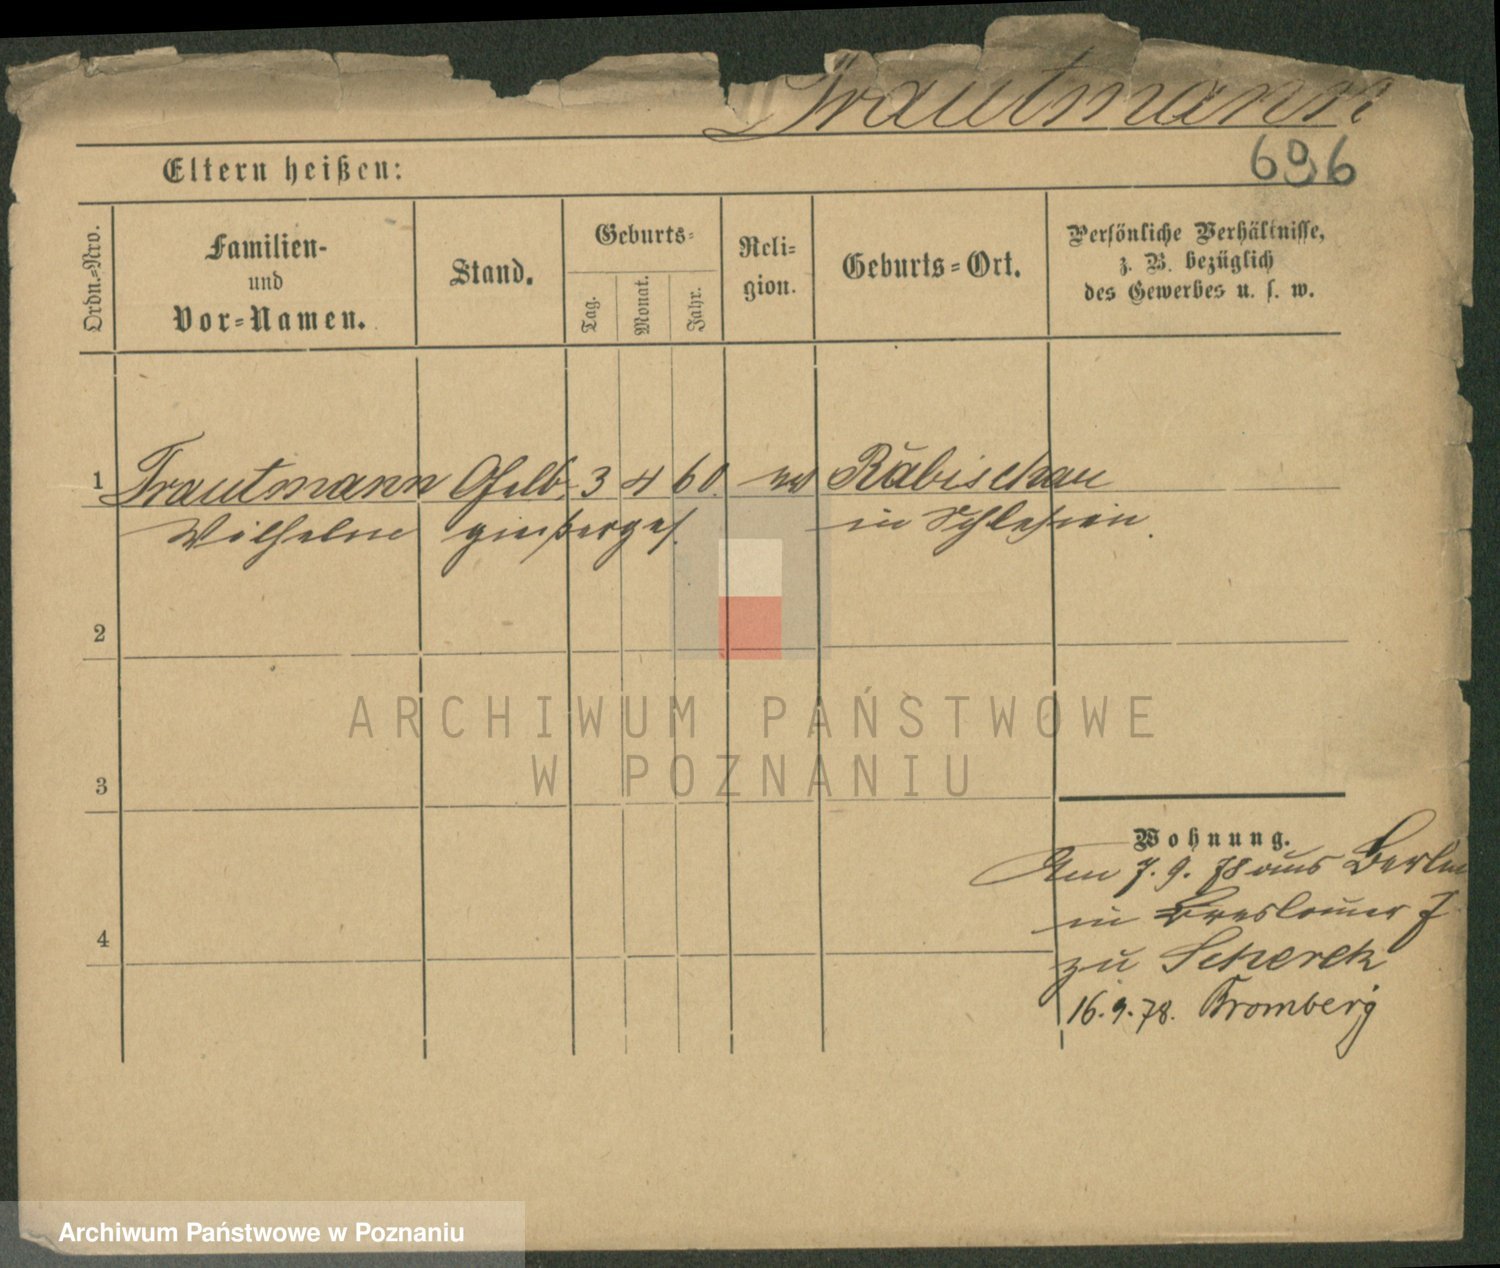 Trautmann
696
Eltern heißen:
Ordn.=Nro.
Familien-
und
Vor=Namen.
Stand.
Geburts=
Tag.
Monat.
Jahr.
Reli=
gion.
Geburts=Ort.
Persönliche Verhältnisse,
z. B. bezüglich
des Gewerbes u. s. w.
1 Trautmann Gelb 3 4 60 Räbischau
Wilhelm gießerges. in Schlesien.
2
ARCHIWUM PAŃSTWOWE
W POZNANIU
3
Wohnung.
Am 7. 9. 78 aus Berlin
in Breslauer
4
zu Scherek
16.9.78. Bromberg
Archiwum Państwowe w Poznaniu